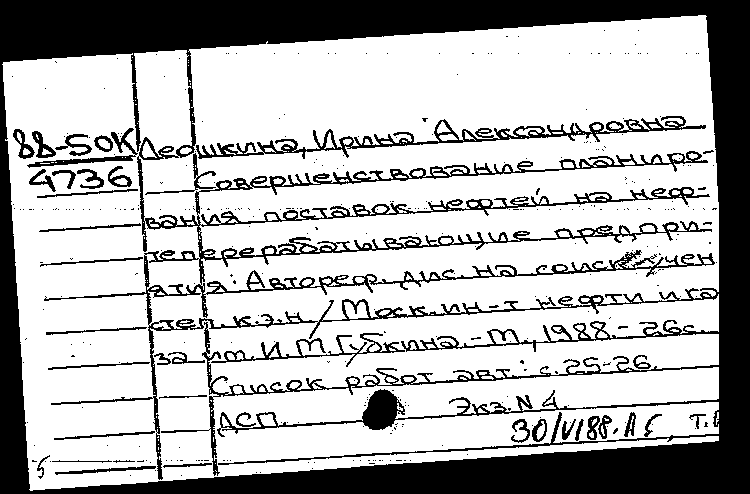 88-5OK Леошкина, Ирина Александровна
4736 Совершенствование планиро-
вания поставок нефтей на неф-
теперерабатывающие предпри-
ятия: Автореф. дис. на соиск. учен
степ. к.э.н. / Моск. ин-т нефти и га
за им. И.М. Губкина. - М., 1988. - 26с.
Список работ авт.: с. 25-26.
ДСП. Экз. N 4.
30/VI88.
5